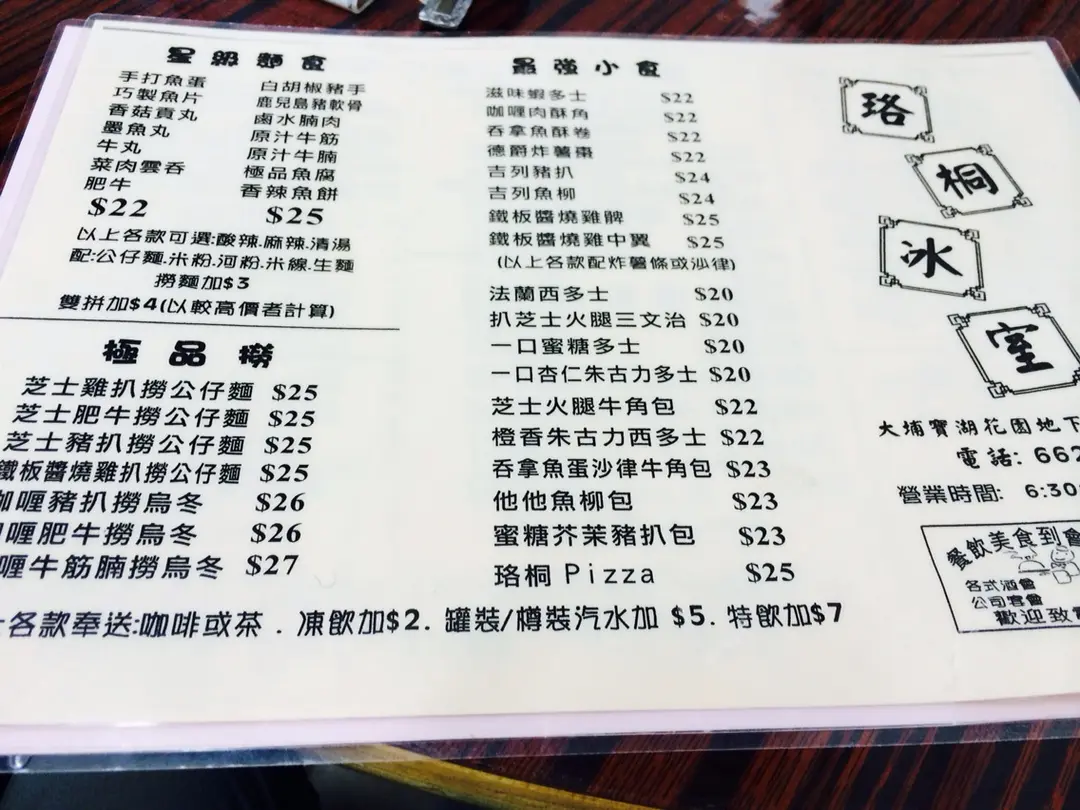 星級麵食
手打魚蛋 白胡椒豬手
巧製魚片 鹿兒島豬軟骨
香菇貢丸 鹵水腩肉
墨魚丸 原汁牛筋
牛丸 原汁牛腩
菜肉雲吞 極品魚腐
肥牛 香辣魚餅
$22 $25
以上各款可選:酸辣.麻辣.清湯
配:公仔麵.米粉.河粉.米線.生麵
撈麵加$3
雙拼加$4(以較高價者計算)
極品撈
芝士雞扒撈公仔麵 $25
芝士肥牛撈公仔麵 $25
芝士豬扒撈公仔麵 $25
鐵板醬燒雞扒撈公仔麵 $25
咖喱豬扒撈烏冬 $26
喱肥牛撈烏冬 $26
喱牛筋腩撈烏冬 $27
最強小食
滋味蝦多士 $22
咖喱肉酥角 $22
吞拿魚酥卷 $22
德爵炸薯棗 $22
吉列豬扒 $24
吉列魚柳 $24
鐵板醬燒雞髀 $25
鐵板醬燒雞中翼 $25
(以上各款配炸薯條或沙律)
法蘭西多士 $20
扒芝士火腿三文治 $20
一口蜜糖多士 $20
一口杏仁朱古力多士 $20
芝士火腿牛角包 $22
橙香朱古力西多士 $22
吞拿魚蛋沙律牛角包 $23
他他魚柳包 $23
蜜糖芥茉豬扒包 $23
珞桐 Pizza $25
各款奉送:咖啡或茶 . 凍飲加$2. 罐裝/樽裝汽水加 $5. 特飲加$7
珞
桐
冰
室
大埔寶湖花園地下
電話: 662
營業時間: 6:30
餐飲美食到會
各式酒會
公司客會
歡迎致電